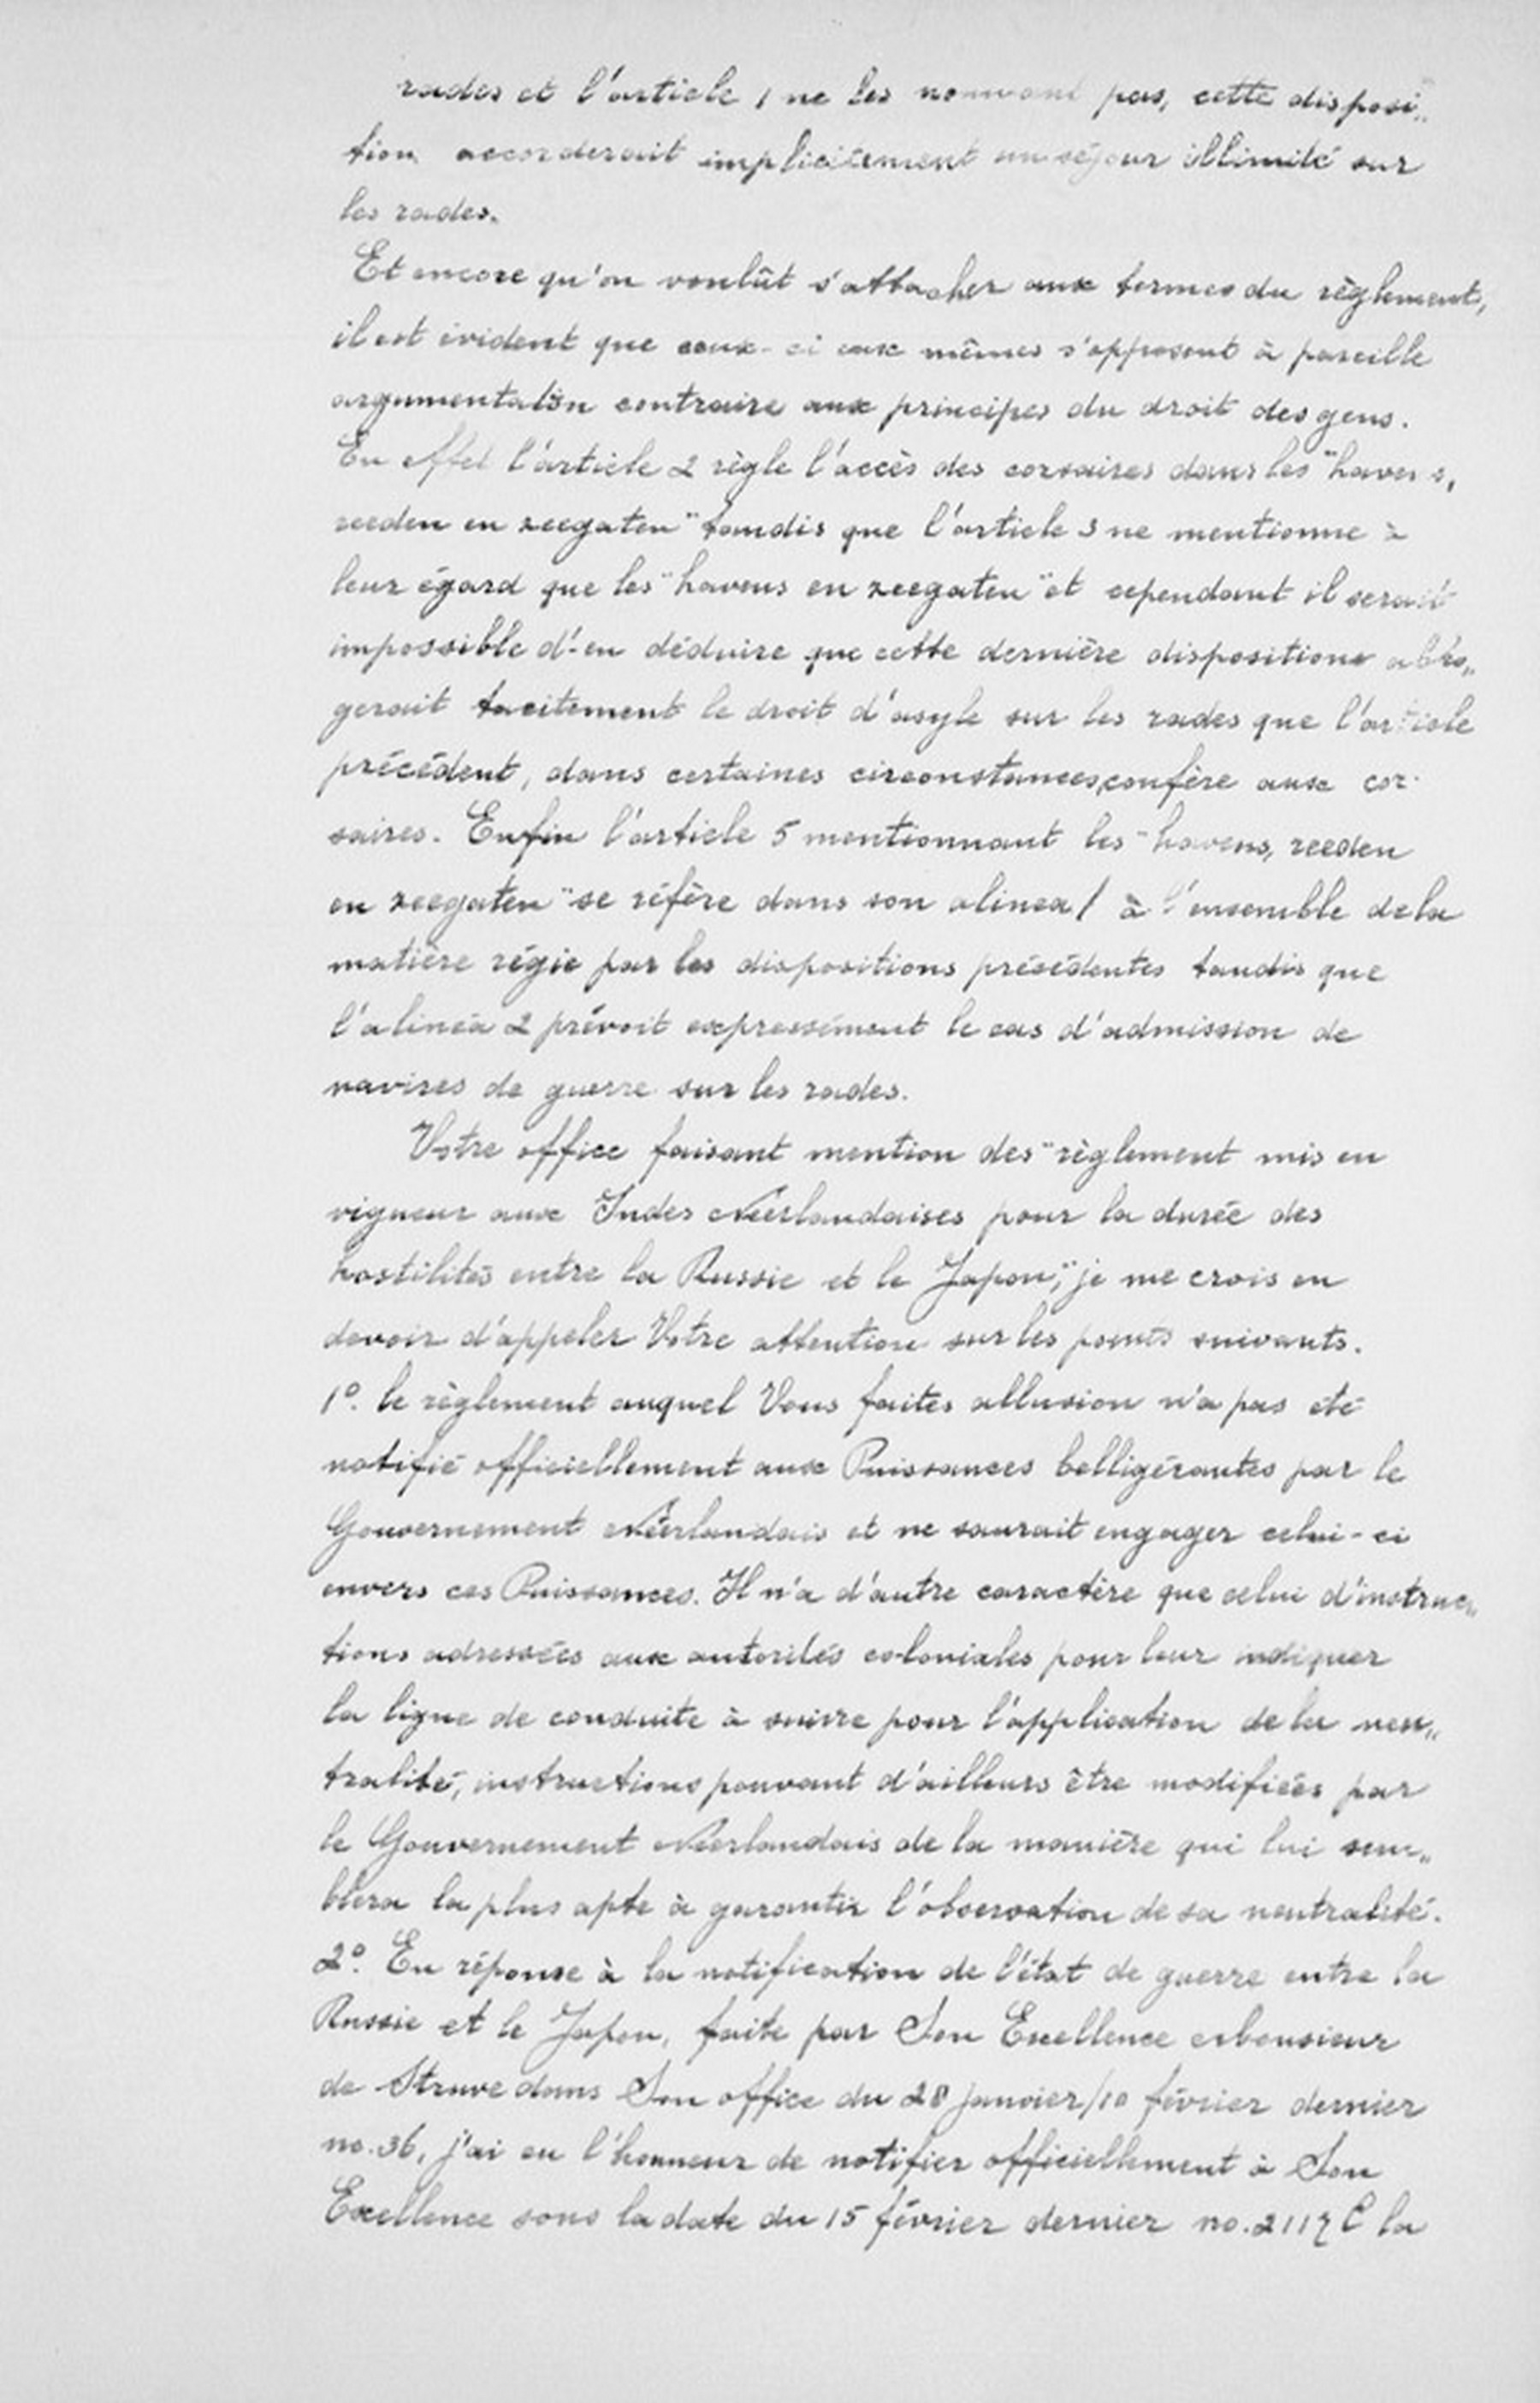 rades et l'article 1 ne les nommant pas, cette disposi„
tion accorderait implicitement un séjour illimité sur
les rades.
Et encore qu'on voulût s'attacher aux termes du règlement,
il est évident que ceux-ci eux mêmes s'opposent à pareille
argumentation contraire aux principes du droit des gens.
En effet l'article 2 règle l'accès des corsaires dans les "havens,
reeden en zeegaten" tandis que l'article 3 ne mentionne à
leur égard que les "havens en zeegaten" et cependant il serait
impossible d'en déduire que cette dernière dispositions abro„
gerait tacitement le droit d'asyle sur les rades que l'article
précédent, dans certaines circonstances, confère aux cor-
saires. Enfin l'article 5 mentionnant les "havens, reeden
en zeegaten" se réfère dans son alinea 1 à l'ensemble de la
matière régie par les dispositions précédentes tandis que
l'alinéa 2 prévoit expressément le cas d'admission de
navires de guerre sur les rades.
Votre office faisant mention des "règlement mis en
vigueur aux Indes Néerlandaises pour la durée des
hostilités entre la Russie et le Japon," je me crois en
devoir d'appeler Votre attention sur les points suivants.
1º. le règlement auquel Vous faites allusion n'a pas été
notifié officiellement aux Puissances belligérantes par le
Gouvernement Néerlandais et ne saurait engager celui-ci
envers ces Puissances. Il n'a d'autre caractère que celui d'instruc„
tions adressées aux autorités coloniales pour leur indiquer
la ligne de conduite à suivre pour l'application de la neu„
tralité, instructions pouvant d'ailleurs être modifiées par
le Gouvernement Néerlandais de la manière qui lui sem„
blera la plus apte à garantir l'observation de sa neutralité.
2º. En réponse à la notification de l'état de guerre entre la
Russie et le Japon, faite par Son Excellence Monsieur
de Struve dans Son office du 28 janvier/10 février dernier
no. 36, j'ai eu l'honneur de notifier officiellement à Son
Excellence sous la date du 15 février dernier no. 2117 C la